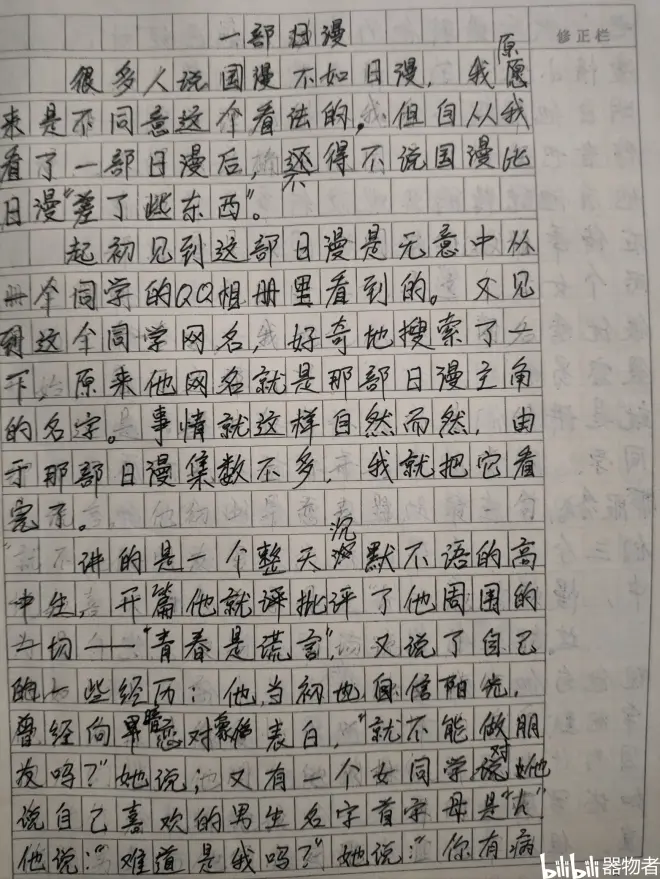 一部日漫
修正栏
很多人说国漫不如日漫，我原
来是不同意这个看法的，但自从我
看了一部日漫后，不得不说国漫比
日漫“差了些东西”。
起初见到这部日漫是无意中从
一个同学的QQ相册里看到的。又见
到这个同学网名，好奇地搜索了一
下，原来他网名就是那部日漫主角
的名字。事情就这样自然而然，由
于那部日漫集数不多，我就把它看
完了。
讲的是一个整天沉默不语的高
中生，开篇他就评批评了他周围的
一切——“青春是谎言”，又说了自己
的一些经历：他当初也自信阳光，
曾经向暗恋对象表白，“就不能做朋
友吗？”她说；又有一个女同学对他
说自己喜欢的男生名字首字母是“h”
他说：“难道是我吗？”她说：“你有病
bilibili 器物者